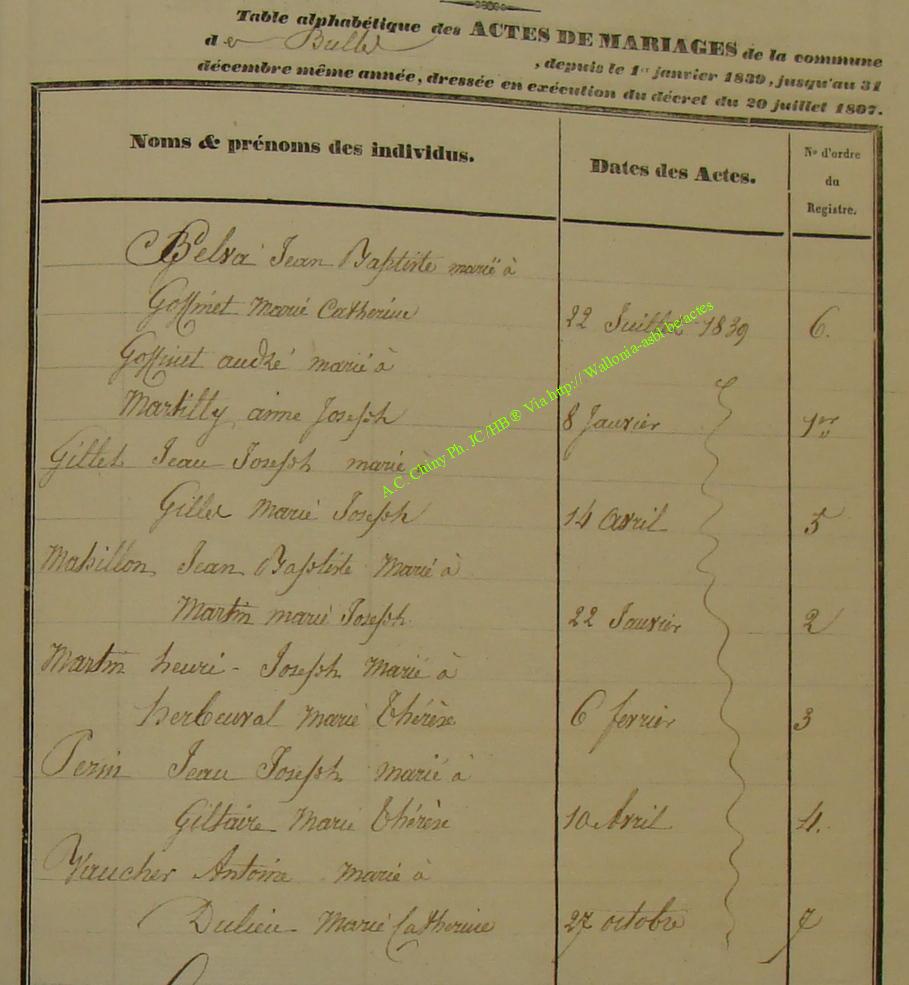 Table alphabétique des ACTES DE MARIAGES de la commune
de Bulles, depuis le 1er janvier 1839, jusqu'au 31
décembre même année, dressée en exécution du décret du 20 juillet 1807.
Noms & prénoms des individus. Dates des Actes. No d'ordre du Registre.
Belva Jean Baptiste marié à
Goffinet Marie Catherine 22 Juillet 1839 6.
Goffinet andré marié à
Martilly anne Joseph 8 Janvier 1er
Gillet Jean Joseph marié à
Gillet Marie Joseph 14 avril 5
Mahillon Jean Baptiste Marié à
Martin marie Joseph 22 Janvier 2
Martin henri - Joseph Marié à
herbeuval Marie thérèse 6 fevrier 3
Perin Jean Joseph marié à
Giltaire Marie thérèse 10 Avril 4.
Vaucher Antoine marié à
Dulieu Marie Catherine 27 octobre 7
A C. Chiny Ph. JC/HB ® Via http:// Wallonia-asbl.be/actes